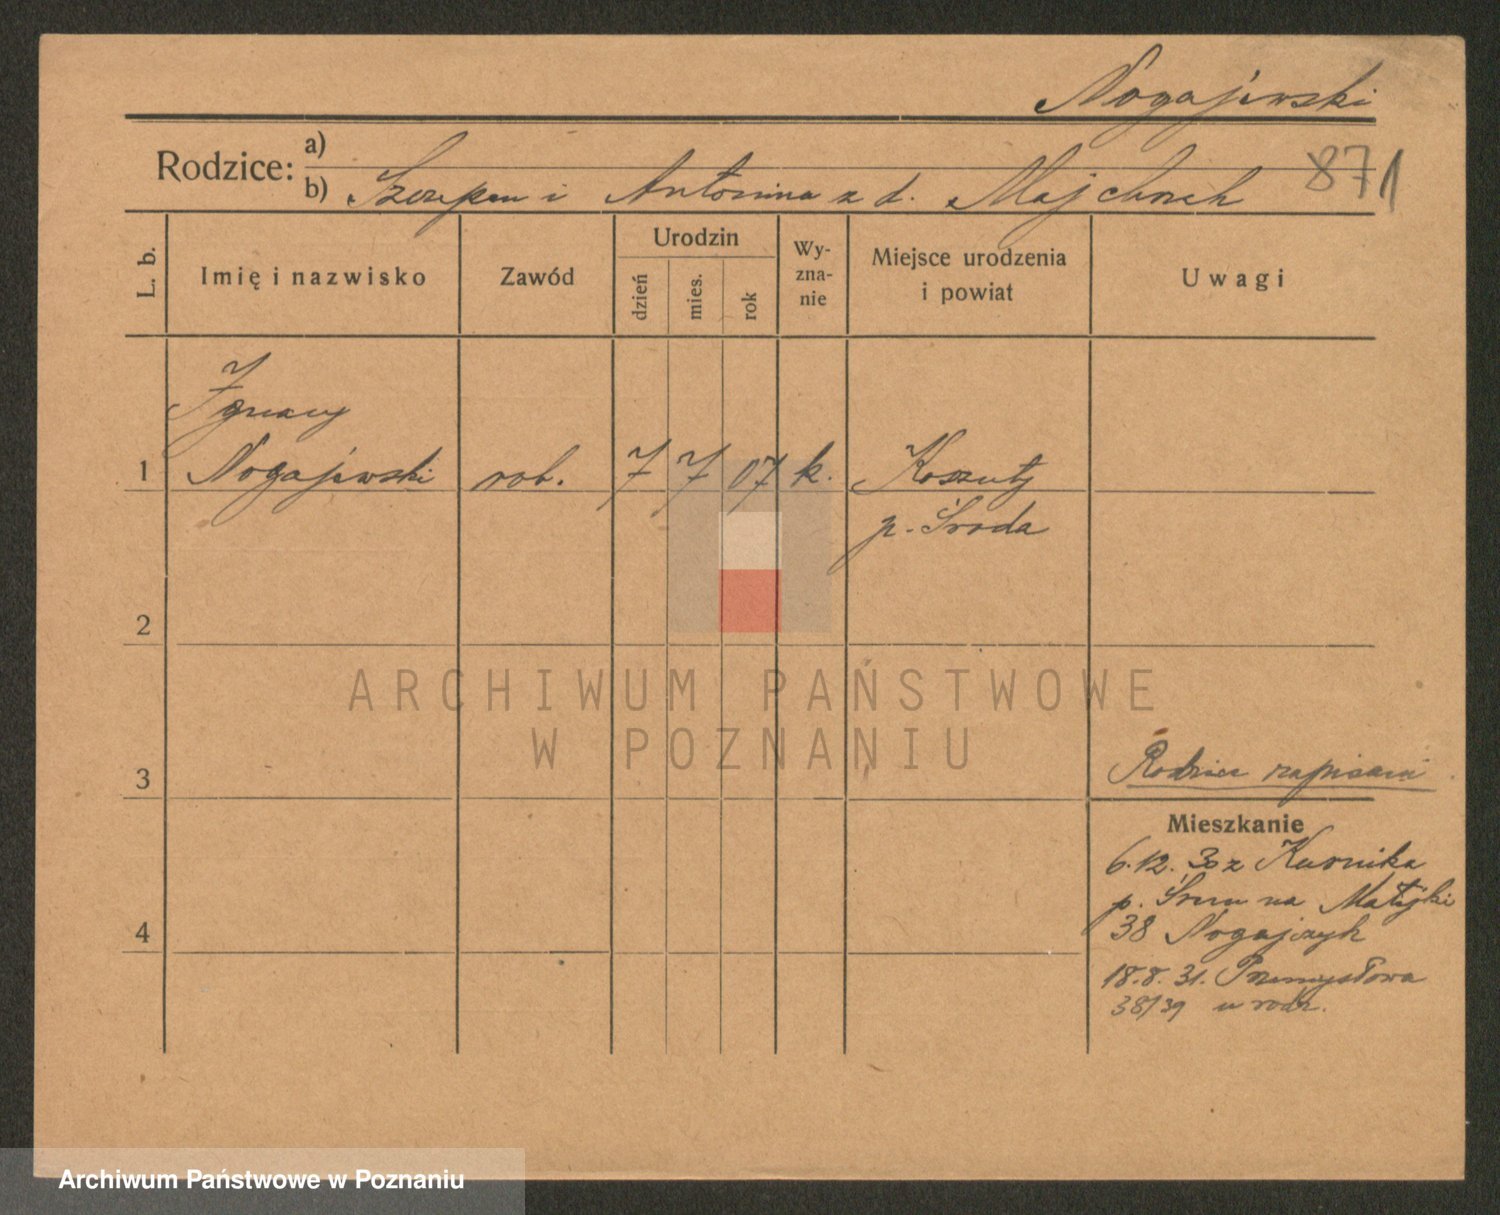 Nogajewski
Rodzice:
a)
b) Szczepan i Antonina z d. Majchrzak
871
L. b.
Imię i nazwisko
Zawód
Urodzin
dzień
mies.
rok
Wy-
zna-
nie
Miejsce urodzenia
i powiat
Uwagi
Ignacy
1 Nogajewski rob. 7 7 07 k. Koszuty
p. Środa
2
3
Rodzice zapisani
Mieszkanie
6.12.30 z Kurnika
p. Śrem na Matejki
38 Nogajczyk
4
18.8.31. Przemysłowa
38/39 u rodz.
ARCHIWUM PAŃSTWOWE
W POZNANIU
Archiwum Państwowe w Poznaniu